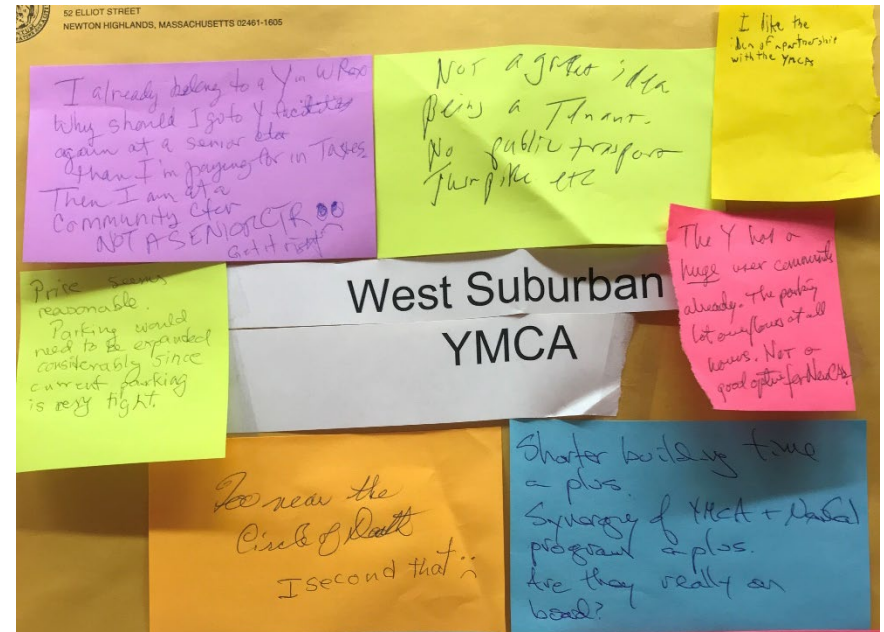 52 ELLIOT STREET
NEWTON HIGHLANDS, MASSACHUSETTS 02461-1605
I already belong to a Y in W Rox
Why should I go to Y facilities
again at a senior ctr
than I'm paying for in Taxes.
Then I am at a
Community Cter
NOT A SENIOR CTR
Get it right
Not a great idea
Being a Tenant.
No public transport
Turnpike etc
I like the
idea of a partnership
with the YMCA
Price seems
reasonable.
Parking would
need to be expanded
considerably since
current parking
is very tight.
West Suburban
YMCA
The Y has a
huge user community
already. The parking
lot overflows at all
hours. Not a
good option for NewCAL
Too near the
Circle of Death
I second that
Shorter building time
a plus.
Synergy of YMCA +
program a plus.
Are they really on
board?